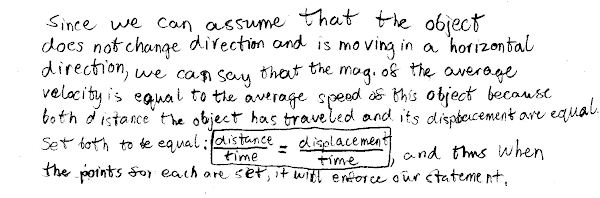 Since we can assume that the object
does not change direction and is moving in a horizontal
direction, we can say that the mag. of the average
velocity is equal to the average speed of this object because
both distance the object has traveled and its displacement are equal.
Set both to be equal: distance/time = displacement/time, and thus when
the points for each are set, it will enforce our statement.